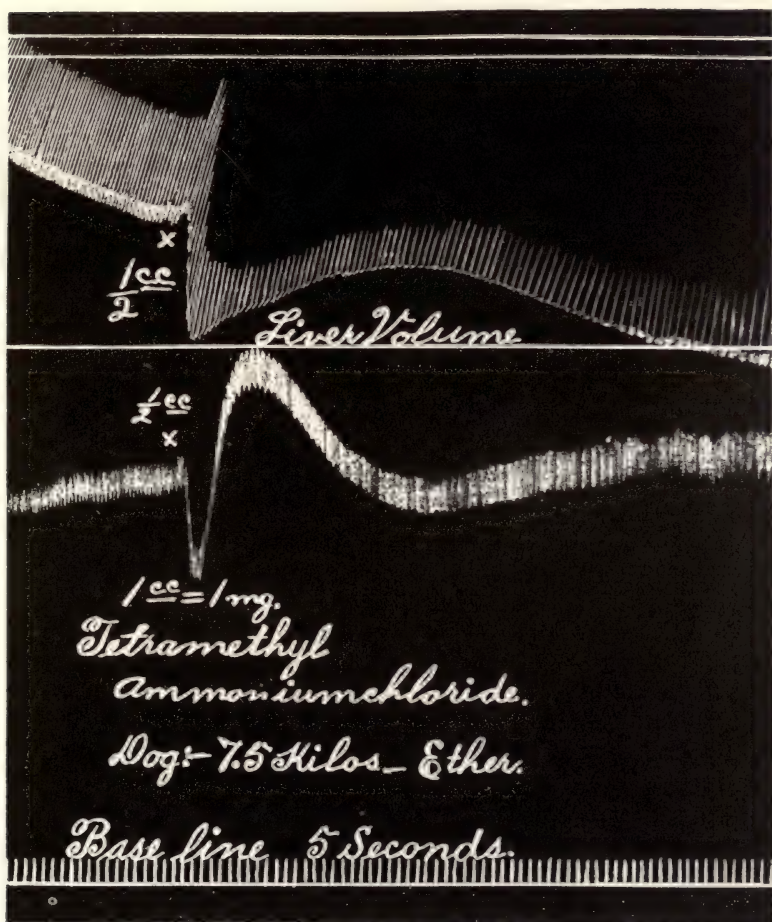 x
1/2 cc
Liver Volume
1/2 cc
x
1 cc = 1 mg.
Tetramethyl
Ammoniumchloride.
Dog:- 7.5 Kilos_ Ether.
Base line 5 Seconds.